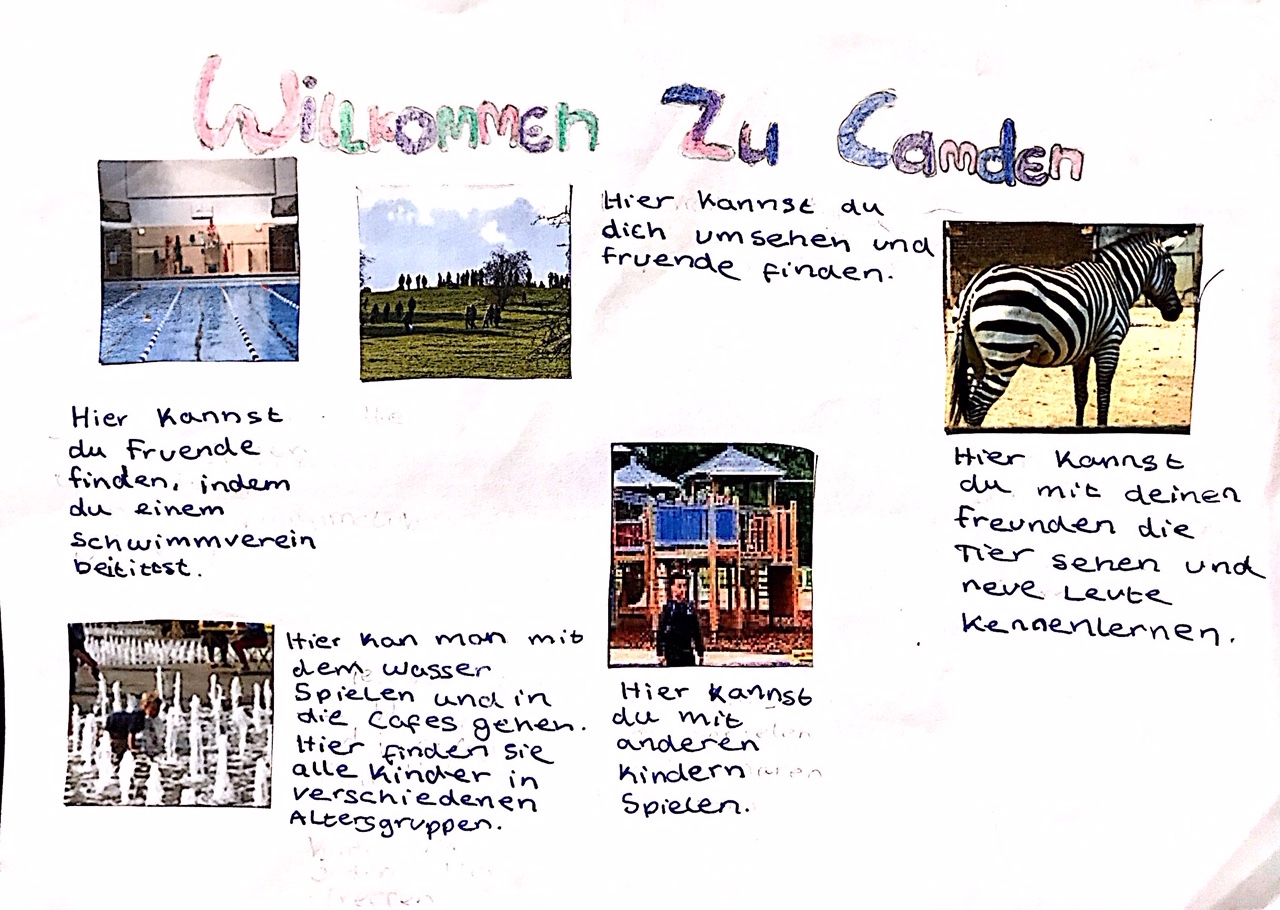 Willkommen Zu Camden
Hier kannst du
dich umsehen und
fruende finden.
Hier kannst
du fruende
finden, indem
du einem
schwimmverein
beitittst.
Hier kannst
du mit deinen
freunden die
Tier sehen und
neue Leute
kennenlernen.
Hier kan man mit
dem wasser
Spielen und in
die Cafes gehen.
Hier finden sie
alle kinder in
verschiedenen
Altersgruppen.
Hier kannst
du mit
anderen
kindern
Spielen.